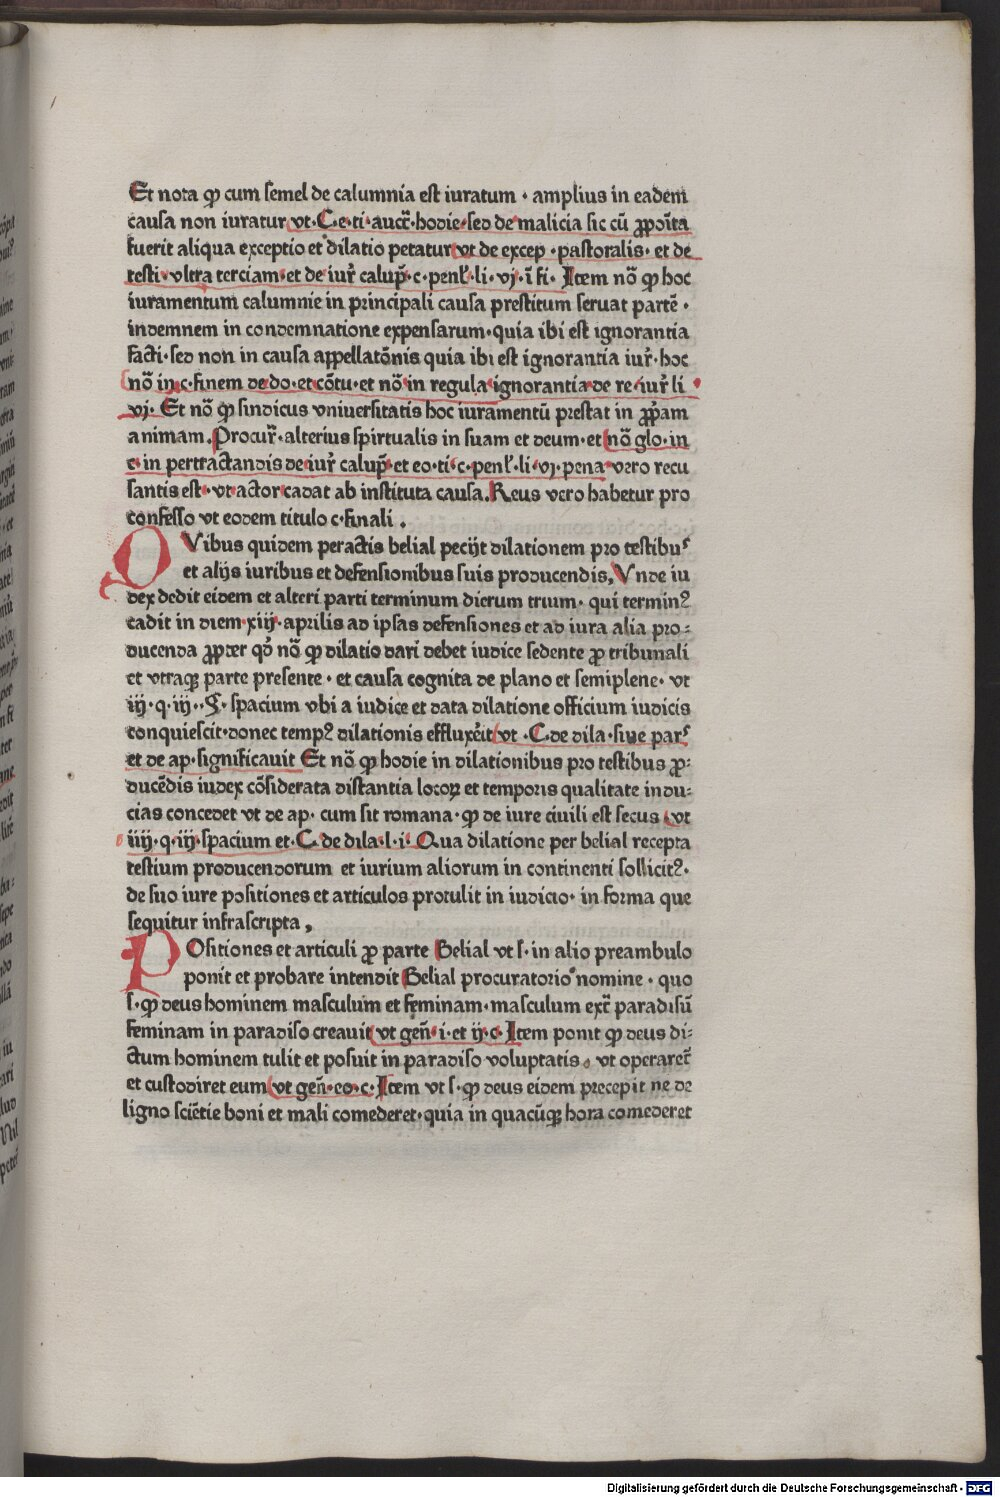 Et nota ꝙ cum semel de calumnia est iuratum · amplius in eadem
causa non iuratur vt·C·e·ti·auct̃·hodie·sed de malicia sic cũ ꝓpoĩta
fuerit aliqua exceptio et dilatio petatur vt de excep · pastoralis· et de
testi·vltra terciam·et de iur̃ calup̃·c·penl̃·li·vj·ĩ fi· Item nõ ꝙ hoc
iuramentum calumnie in principali causa prestitum seruat partẽ ·
indemnem in condemnatione expensarum·quia ibi est ignorantia
facti·sed non in causa appellatõnis quia ibi est ignorantia iur̃·hoc
nõ in·c·finem de do·et cõtu·et nõ in regula ignorantia de re·iur̃ li
vj· Et nõ ꝙ sindicus vniuersitatis hoc iuramentũ prestat in ꝓp̃am
animam.Procur̃·alterius spirtualis in suam et deum·et nõ glo·in
c·in pertractandis de iur̃ calup̃·et eo·ti·c·penl̃·li·vj·pena vero recu
santis est·vt actor cadat ab instituta causa.Reus vero habetur pro
confesso vt eodem titulo c·finali .
QVibus quidem peractis belial pecijt dilationem pro testibuˢ
et alijs iuribus et defensionibus suis producendis,Vnde iu
dex dedit eidem et alteri parti terminum dierum trium· qui terminꝰ
cadit in diem xiij·aprilis ad ipsas defensiones et ad iura alia pro⸗
ducenda ꝓpter qđ nõ ꝙ dilatio dari debet iudice sedente ꝓ tribunali
et vtraqꝫ parte presente · et causa cognita de plano et semiplene· vt
iij·q·iij··§· spacium vbi a iudice et data dilatione officium iudicis
conquiescit·donec tempꝰ dilationis effluxẽit vt ·C·de dila·siue parˢ
et de ap·significauit Et nõ ꝙ hodie in dilationibus pro testibus ꝓ⸗
ducẽdis iudex cõsiderata distantia locoꝝ et temporis qualitate indu⸗
cias concedet vt de ap· cum sit romana·ꝙ de iure ciuili est secus vt
iiij·q·iij·spacium et·C·de dila·l·i· Qua dilatione per belial recepta
testium producendorum et iurium aliorum in continenti sollicitꝰ·
de suo iure positiones et articulos protulit in iudicio· in forma que
sequitur infrascripta ,
POsitiones et articuli ꝓ parte Belial vt s· in alio preambulo
ponit et probare intendit Belial procuratorio nomine · quo
s·ꝙ deus hominem masculum et feminam·masculum ext̃ paradisũ
feminam in paradiso creauit vt geñ·i·et ij·c·Item ponit ꝙ deus di⸗
ctum hominem tulit et posuit in paradiso voluptatis · vt operaret̃
et custodiret eum vt geñ·eo·c·Item vt s·ꝙ deus eidem precepit ne de
ligno sciẽtie boni et mali comederet·quia in quacũqꝫ hora comederet
Digitalisierung gefördert durch die Deutsche Forschungsgemeinschaft - DFG